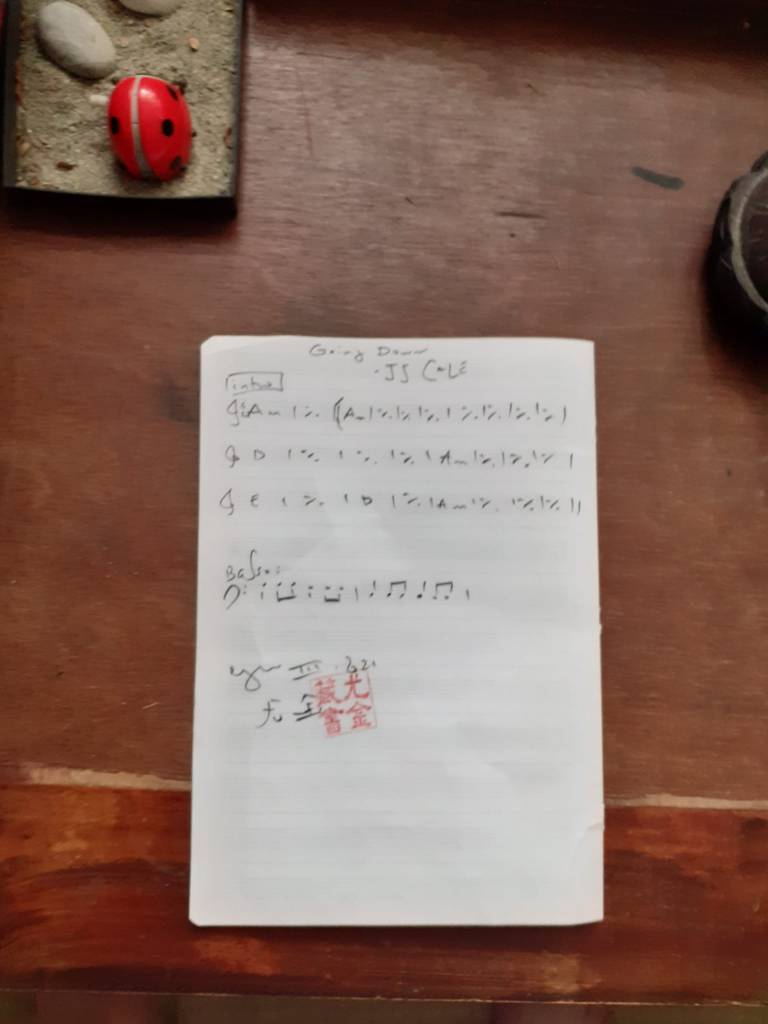 Going Down
JJ CALE
intro
Am | ٪ | Am | ٪ | ٪ | ٪ | ٪ | ٪ | ٪ | ٪ |
D | ٪ | ٪ | ٪ | Am | ٪ | ٪ | ٪ |
E | ٪ | D | ٪ | Am | ٪ | ٪ | ٪ ||
Basso:
III
尤金
尤金藏書